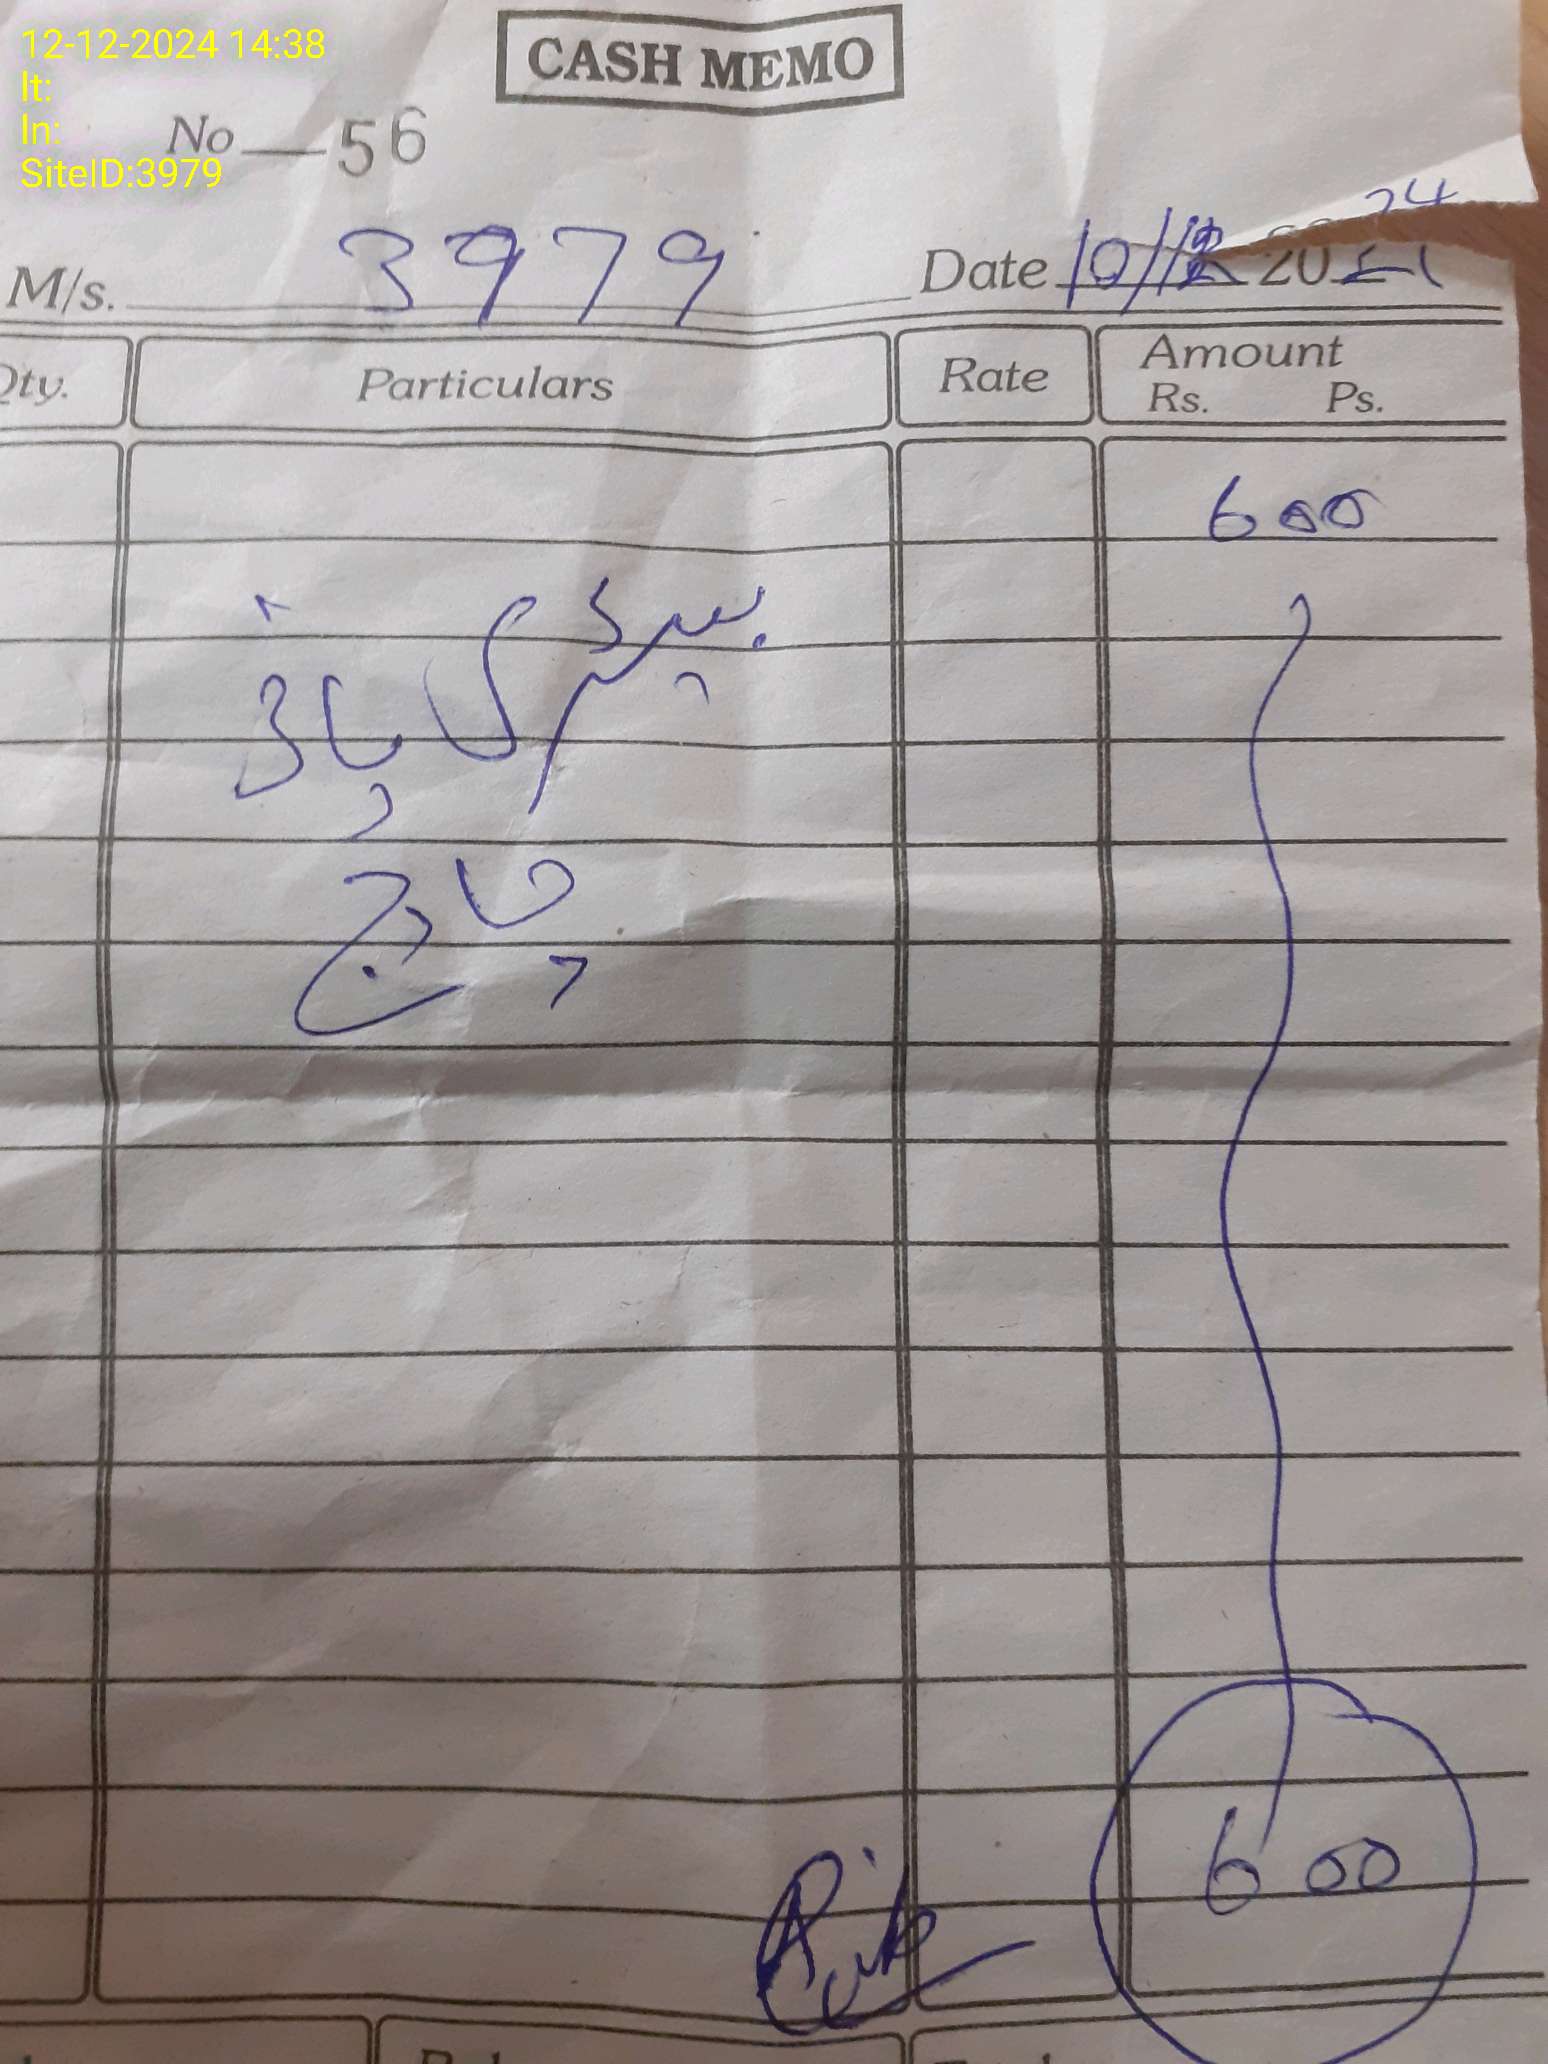 12-12-2024 14:38
lt:
ln:
SiteID:3979
CASH MEMO
No — 56
M/s. 3979 Date 10/12 2024
Qty. Particulars Rate Amount
Rs. Ps.
600
بیٹری
چارج
600